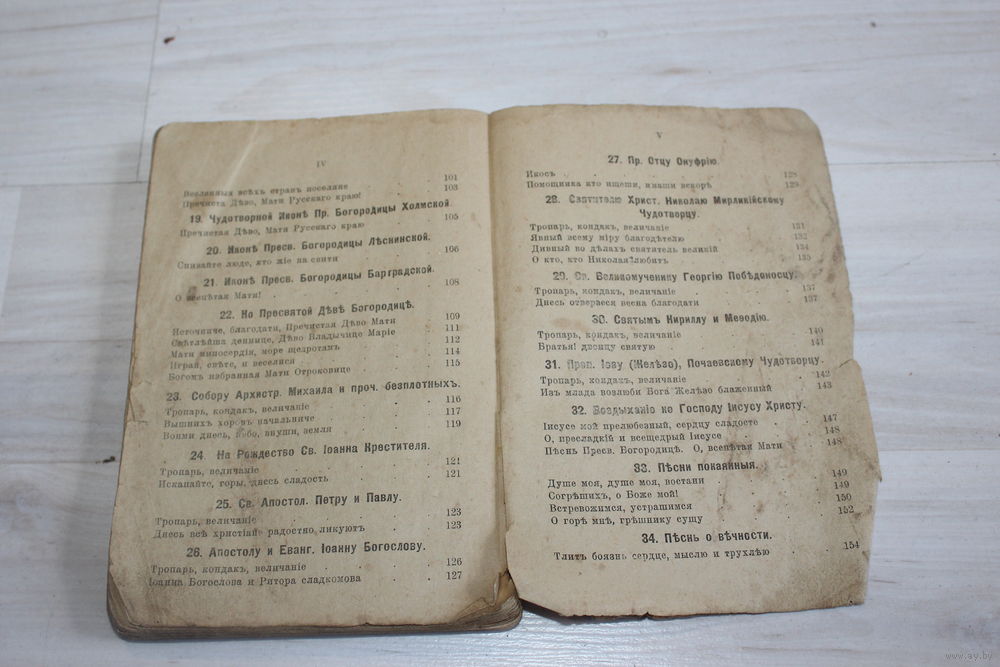 IV
Вселенныя всѣхъ стран поселяне . . 101
Пречиста Дѣво, Мати Русскаго краю! . . 103
19. Чудотворной Иконѣ Пр. Богородицы Холмской.
Пречистая Дѣво, Мати Русскаго краю . . 105
20. Иконѣ Пресв. Богородицы Лѣснинской.
люде, кто на свити . . 106
21. Иконѣ Пресв. Богородицы Барградской.
О всепѣтая Мати! . . 108
22. Ко Пресвятой Дѣвѣ Богородицѣ.
Источниче, благодати, Пречистая Дѣво Мати . 109
Свѣтлѣйша деннице, Дѣво Владычице Маріе . 111
Мати милосердія, море щедротам . . 112
Играй, свѣте, и веселися . . 114
Богом избранная Мати Отроковице . . 115
23. Собору Архистр. Михаила и проч. безплотных.
Тропарь, кондак, величаніе . . 116
Вышних хоровъ начальниче . . 117
Вонми днесь, небо, внуши, земля . . 119
24. На Рождество Св. Іоанна Крестителя.
Тропарь, величаніе . . 121
Искапайте, горы, днесь сладость . . 121
25. Св. Апостол. Петру и Павлу.
Тропарь, величаніе . . 123
Днесь всѣ христіане радостно ликуют . . 123
26. Апостолу и Еванг. Іоанну Богослову.
Тропарь, кондак, величаніе . . 126
Іоанна Богослова и Ритора сладкомова . . 127
V
27. Пр. Отцу Онуфрію.
Икосъ . . 128
Помощника кто ищеши, имаши вскорѣ . . 129
28. Святителю Христ. Николаю Мирликійскому
Чудотворцу.
Тропарь, кондак, величаніе . . 131
Явный всему міру благодѣтелю . . 132
Дивный во дѣлах святитель великій . . 134
О кто, кто Николая любит . . 135
29. Св. Великомученику Георгію Побѣдоносцу.
Тропарь, кондак, величаніе . . 137
Днесь отверзеся весна благодати . . 137
30. Святымъ Кириллу и Меѳодію.
Тропарь, кондак, величаніе . . 140
Братья! двоицу святую . . 141
31. Преп. Іову (Желѣзо), Почаевскому Чудотворцу.
Тропарь, кондак, величаніе . . 142
Из млада возлюби Бога Желѣзо блаженный . 143
32. Воздыханіе ко Господу Іисусу Христу.
Іисусе мой прелюбезный, сердцу сладосте . . 147
О, пресладкій и всещедрый Іисусе . . 148
Пѣснь Пресв. Богородицѣ. О, всепѣтая Мати . 148
33. Пѣсни покаянныя.
Душе моя, душе моя, востани . . 149
Согрѣшихъ, о Боже мой! . . 149
Встревожимся, устрашимся . . 150
О горѣ мнѣ, грѣшнику сущу . . 152
34. Пѣснь о вѣчности.
Тлитъ боязнь сердце, мыслю и трухлѣю . . 154
www.ay.by